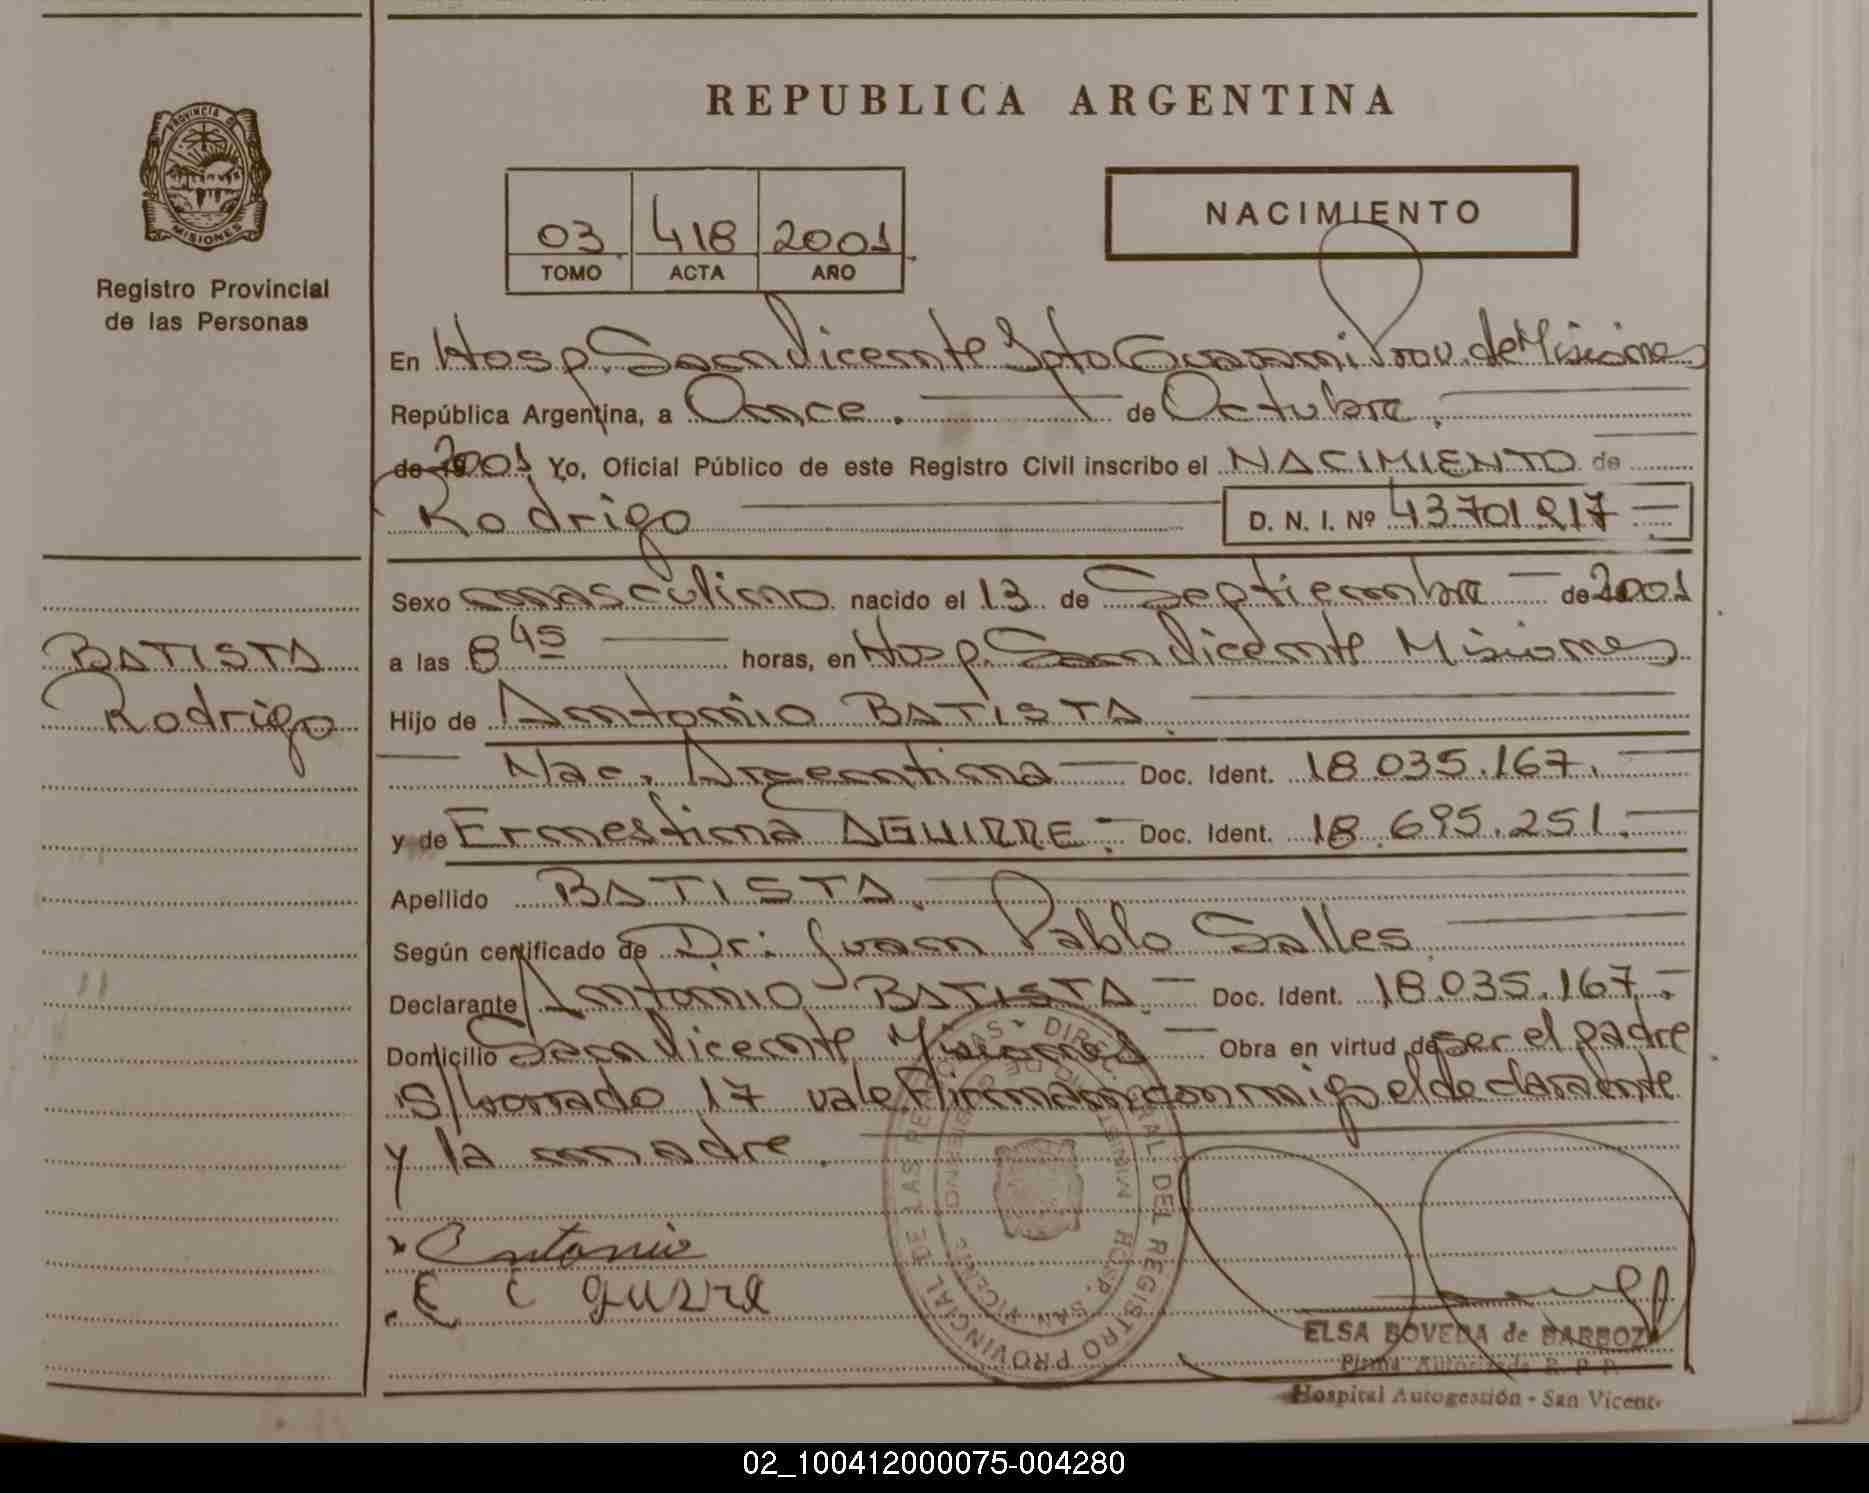 REPUBLICA ARGENTINA
PROVINCIA DE
MISIONES
Registro Provincial
de las Personas
03 418 2001
TOMO ACTA AÑO
NACIMIENTO
En Hosp. San Vicente Dpto Guarani Prov. de Misiones
República Argentina, a Once. de Octubre.
de 2001 Yo, Oficial Público de este Registro Civil inscribo el NACIMIENTO de
Rodrigo D. N. I. Nº 43.701.217
Sexo masculino nacido el 13 de Septiembre de 2001
BATISTA
Rodrigo
a las 8 45 horas, en Hosp. San Vicente Misiones
Hijo de Antonio BATISTA.
Nac. Argentina Doc. Ident. 18.035.167.
y de Ernestina AGUIRRE. Doc. Ident. 18.695.251.
Apellido BATISTA.
Según certificado de Dr: Juan Pablo Salles.
Declarante Antonio BATISTA. Doc. Ident. 18.035.167.
Domicilio San Vicente Misiones Obra en virtud de ser el padre
S/borrado 17 vale. Firman conmigo el declarante
y la madre.
DIREC. GRAL DEL REGISTRO PROVINCIAL DE LAS PERSONAS
MINISTERIO DE GOBIERNO
HOSP. SAN VICENTE
Antonio
E C guzre
ELSA BOVEDA de BARBOZA
Firma Autorizada R. P. P.
Hospital Autogestión - San Vicente
02_100412000075-004280